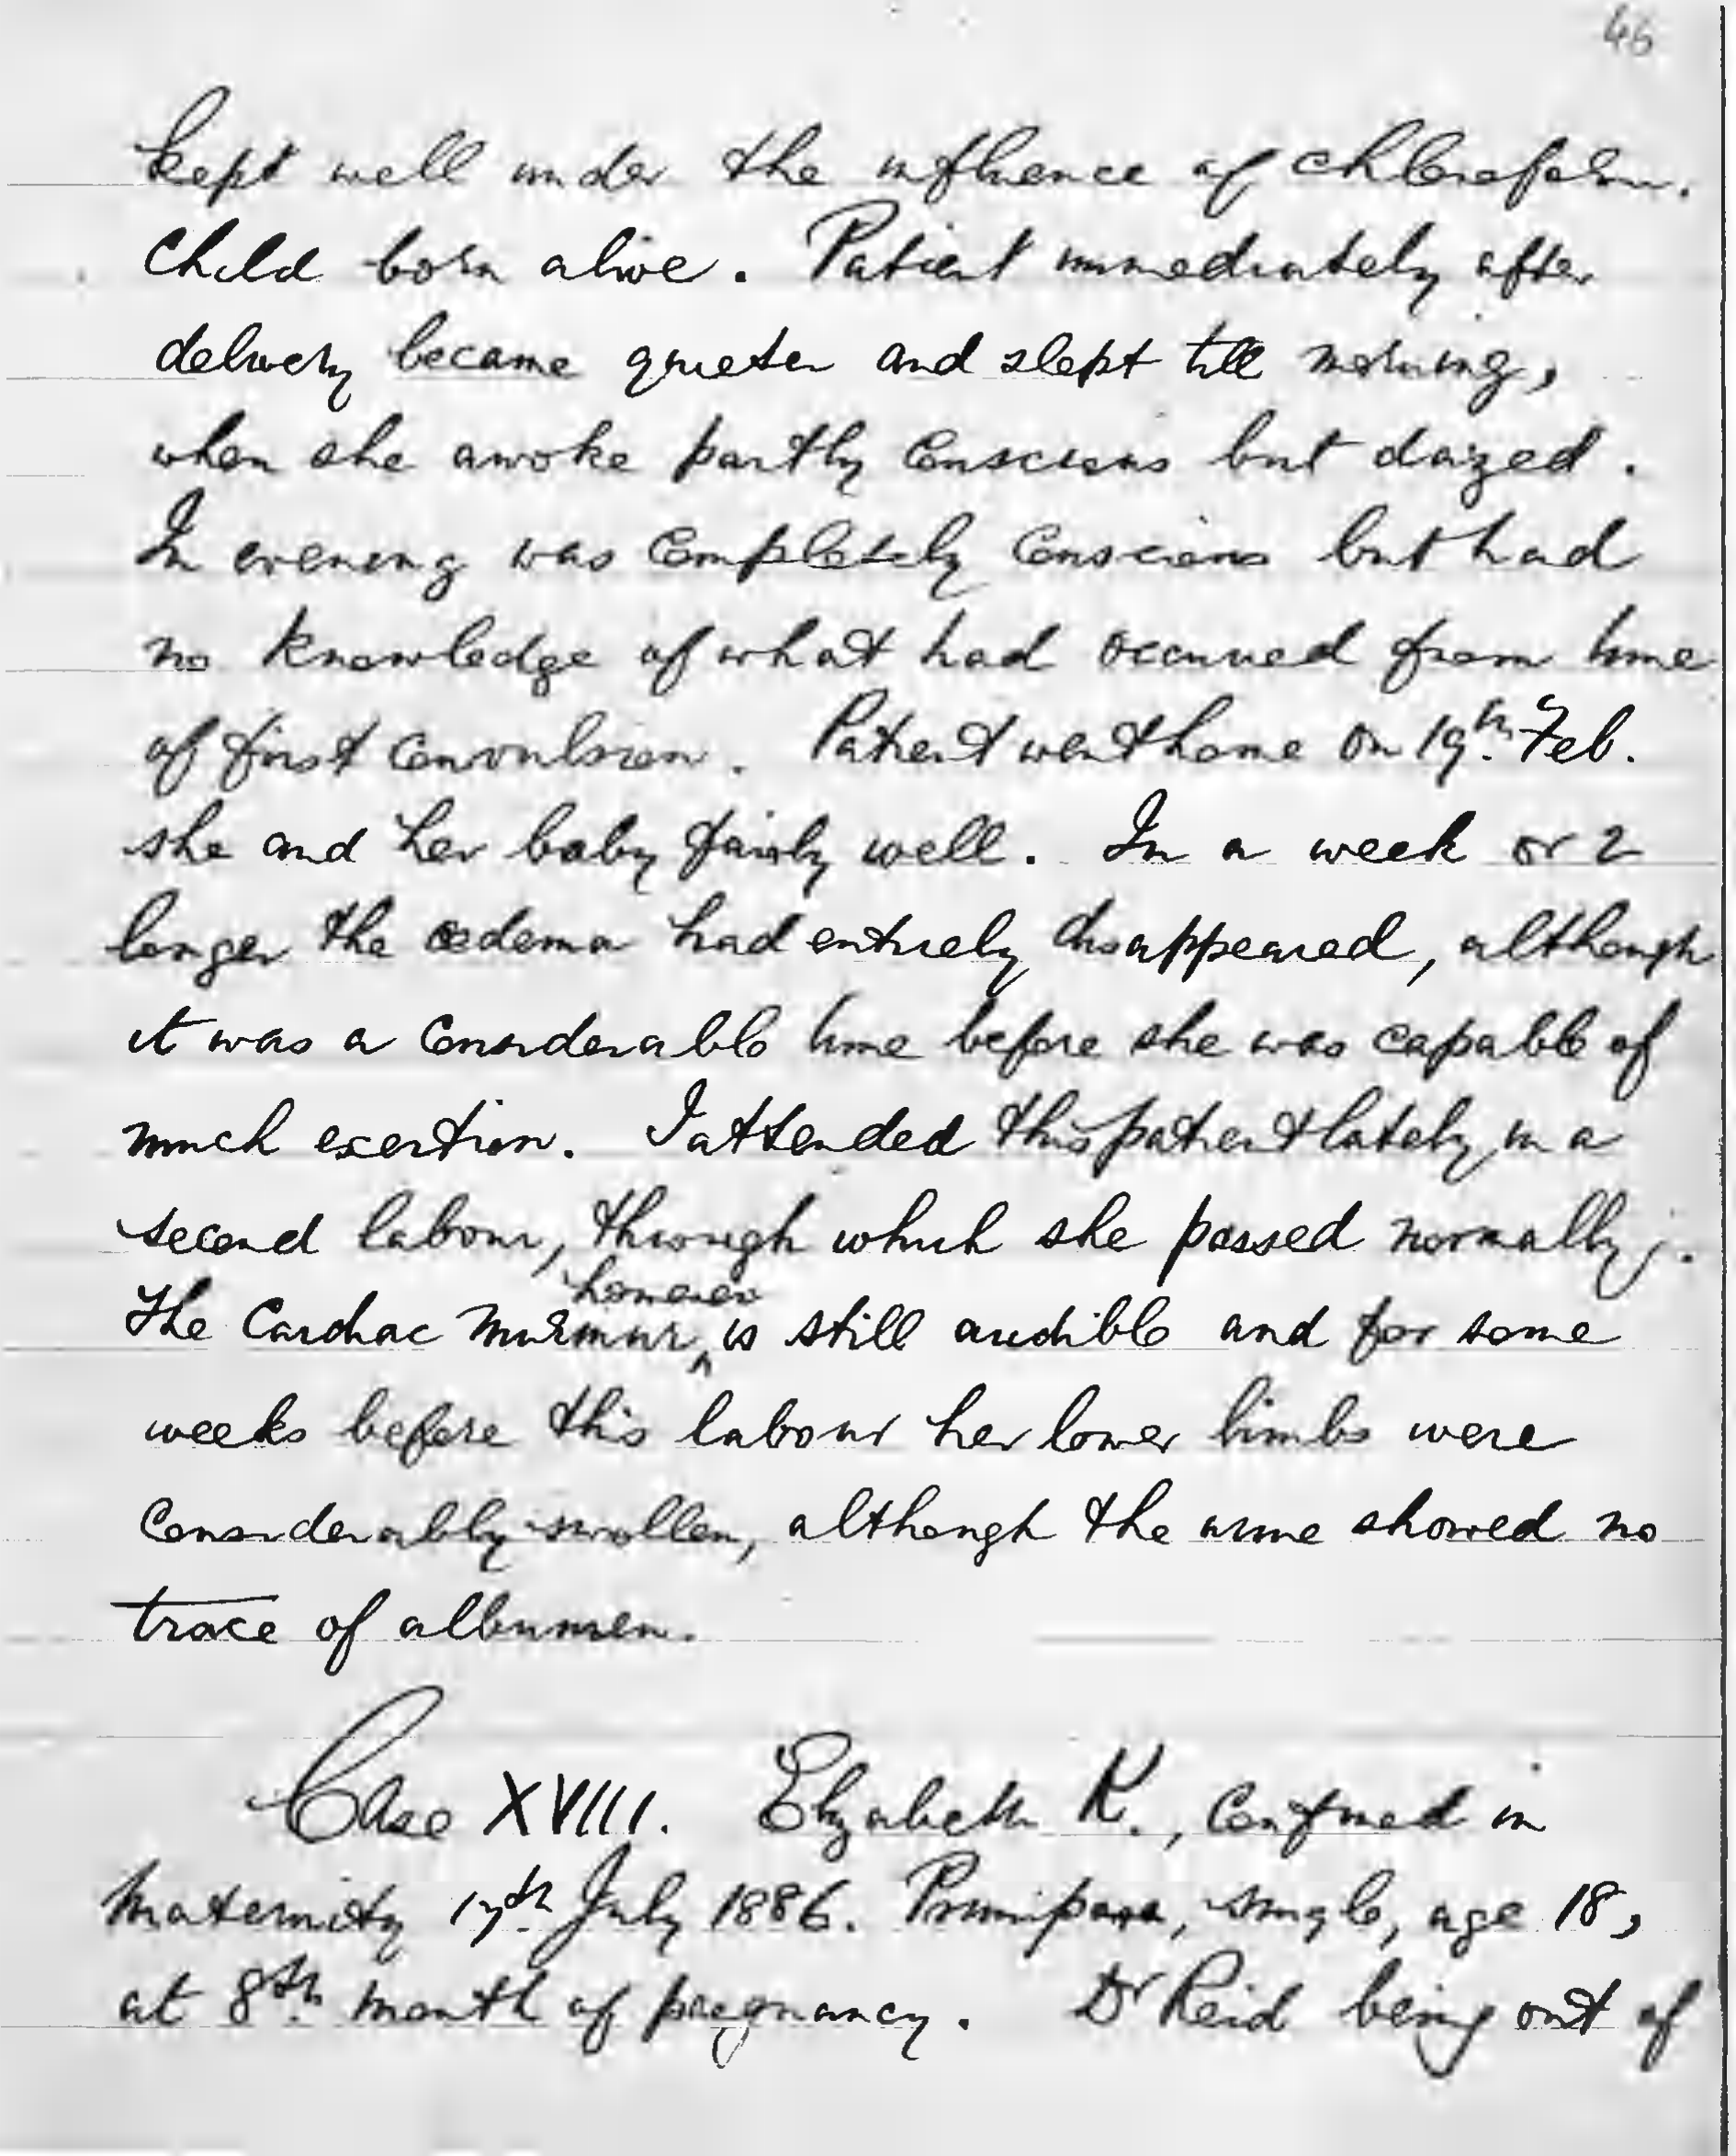 46
kept well under the influence of chloroform.
Child born alive. Patient immediately after
delivery became quieter and slept till morning,
when she awoke partly conscious but dazed.
In evening was completely conscious but had
no knowledge of what had occurred from time
of first convulsion. Patient went home on 19th Feb.
she and her baby fairly well. In a week or 2
longer the œdema had entirely disappeared, although
it was a considerable time before she was capable of
much exertion. I attended this patient lately in a
second labour, through which she passed normally;.
however
The cardiac murmur ^ is still audible and for some
weeks before this labour her lower limbs were
considerably swollen, although the urine showed no
trace of albumen.
Case XVIII. Elizabeth K., confined in
Maternity 17th July 1886. Primipara, single, age 18,
at 8th month of pregnancy. Dr Reid being out of